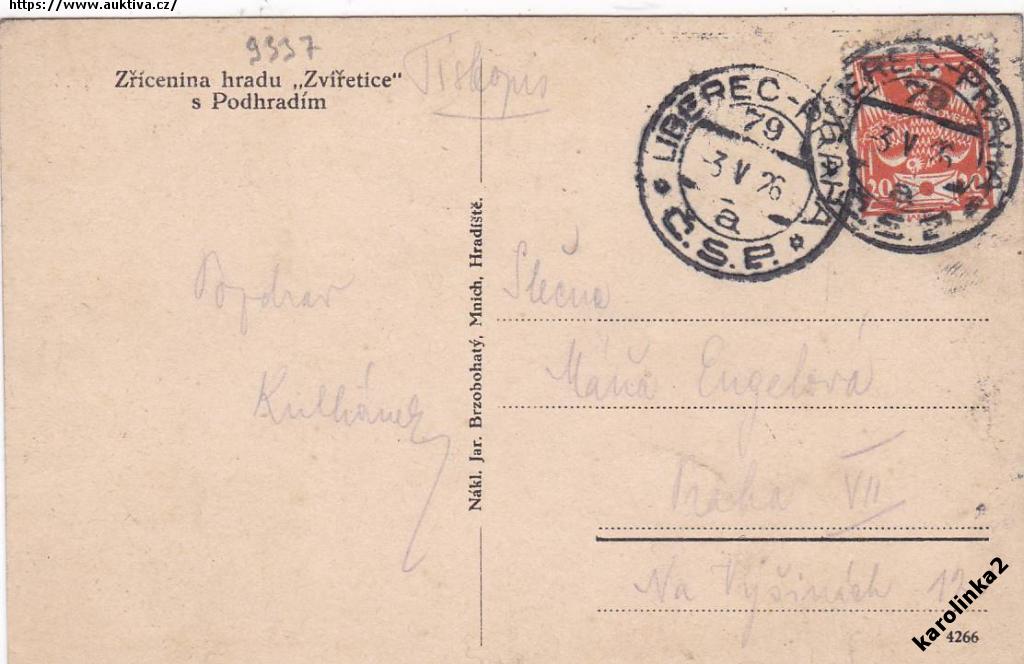 https://www.auktiva.cz/
9337
Zřícenina hradu „Zvířetice“
s Podhradím
Tiskopis
LIBEREC-PRAHA
79
3 V 26
a
Č.S.P.
LIBEREC-PRAHA
79
3 V 26
a
Č.S.P.
20 20
Pozdrav
Kulhánek
Nákl. Jar. Brzobohatý, Mnich. Hradiště.
Slečna
Máňa Engelová
Praha VII
Na Výšinách 12
4266
karolinka2